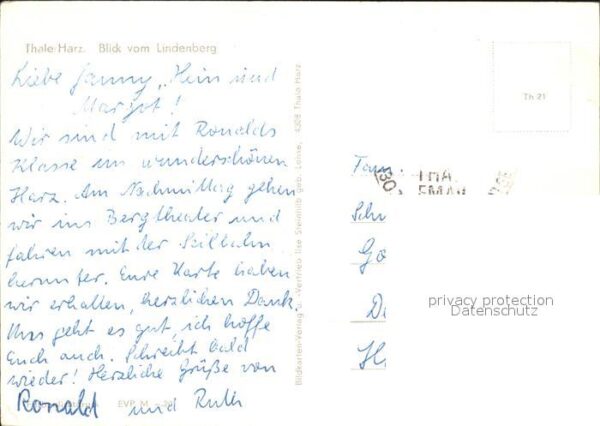 Thale-Harz. Blick vom Lindenberg
Liebe Janny, Hein und
Margot!
Wir sind mit Ronalds
Klasse im wunderschönen
Harz. Am Nachmittag gehen
wir ins Bergtheater und
fahren mit der Seilbahn
herunter. Eure Karte haben
wir erhalten, herzlichen Dank.
Uns geht es gut, ich hoffe
Euch auch. Schreibt bald
wieder! Herzliche Grüße von
Ronald und Ruth
EVP M
Bildkarten-Verlag u. -Vertrieb Ilse Steinhilb geb. 4308 Thale Harz
Th 21
Fam
Sch
Go
D
H
privacy protection
Datenschutz